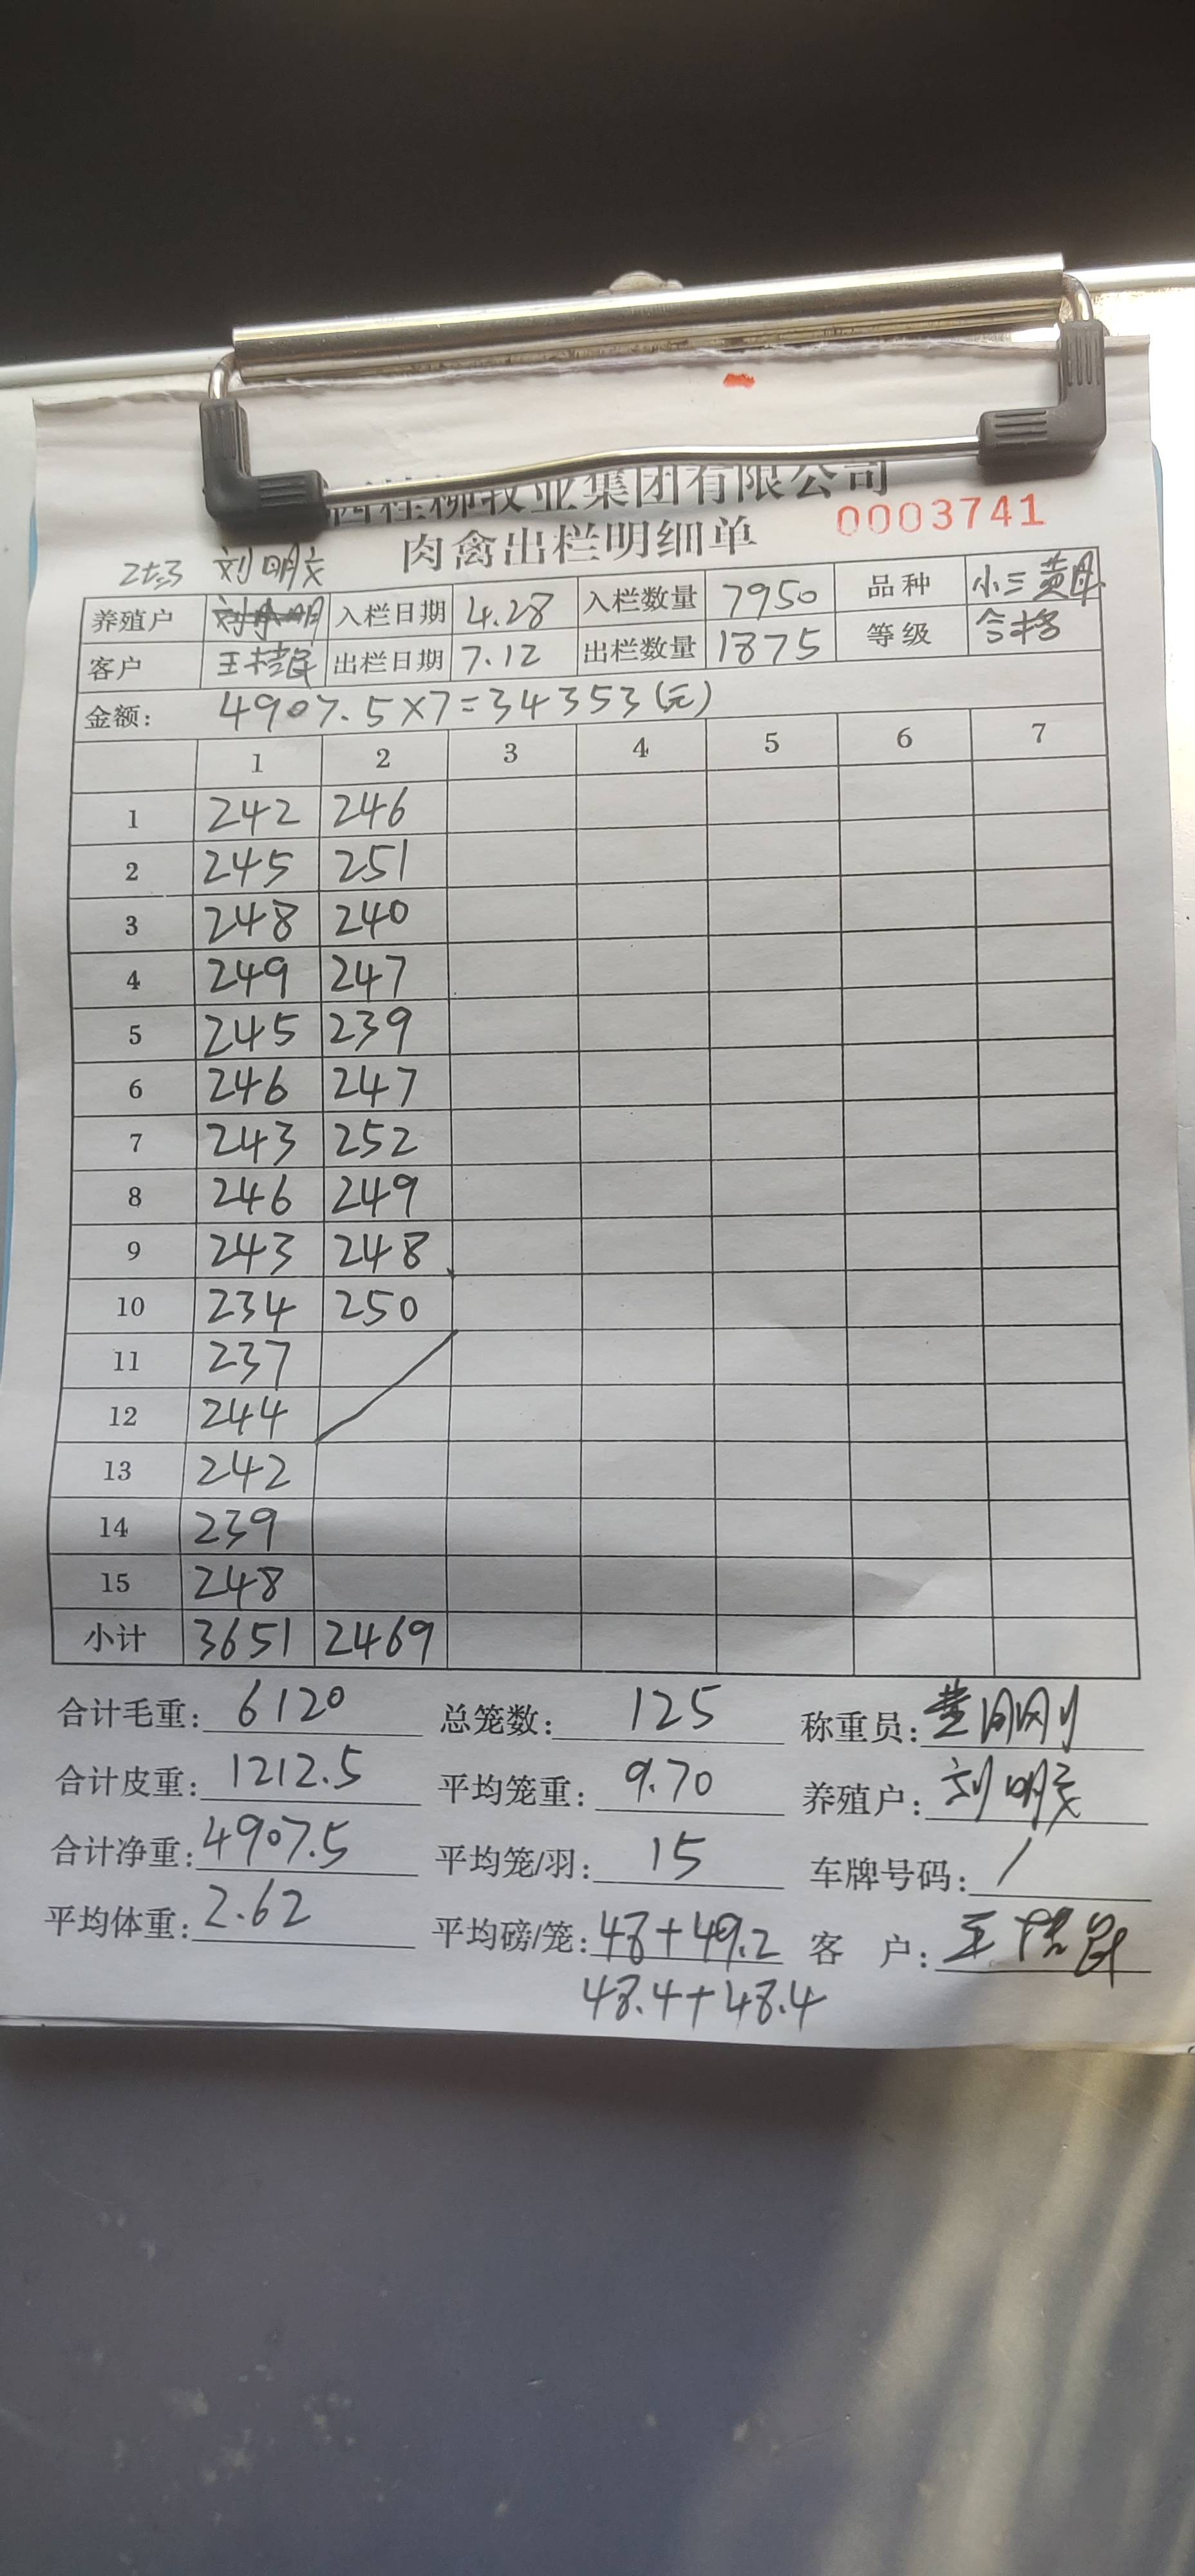 西桂柳牧业集团有限公司
肉禽出栏明细单 0003741
刘明
养殖户 入栏日期 4.28 入栏数量 7950 品种 小三黄
客户 出栏日期 7.12 出栏数量 1875 等级 合格
金额: 4907.5×7=34353(元)
1 2 3 4 5 6 7
1 242 246
2 245 251
3 248 240
4 249 247
5 245 239
6 246 247
7 243 252
8 246 249
9 243 248
10 234 250
11 237
12 244
13 242
14 239
15 248
小计 3651 2469
合计毛重: 6120 总笼数: 125 称重员: 黄刚刚
合计皮重: 1212.5 平均笼重: 9.70 养殖户: 刘明
合计净重: 4907.5 平均笼/羽: 15 车牌号码: /
平均体重: 2.62 平均磅/笼: 48+49.2 客 户: 王
48.4+48.4